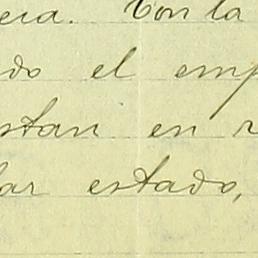 era. Con la
do el emp
stan en r
lar estado,